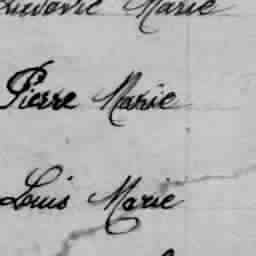 Ludovic Marie
Pierre Marie
Louis Marie